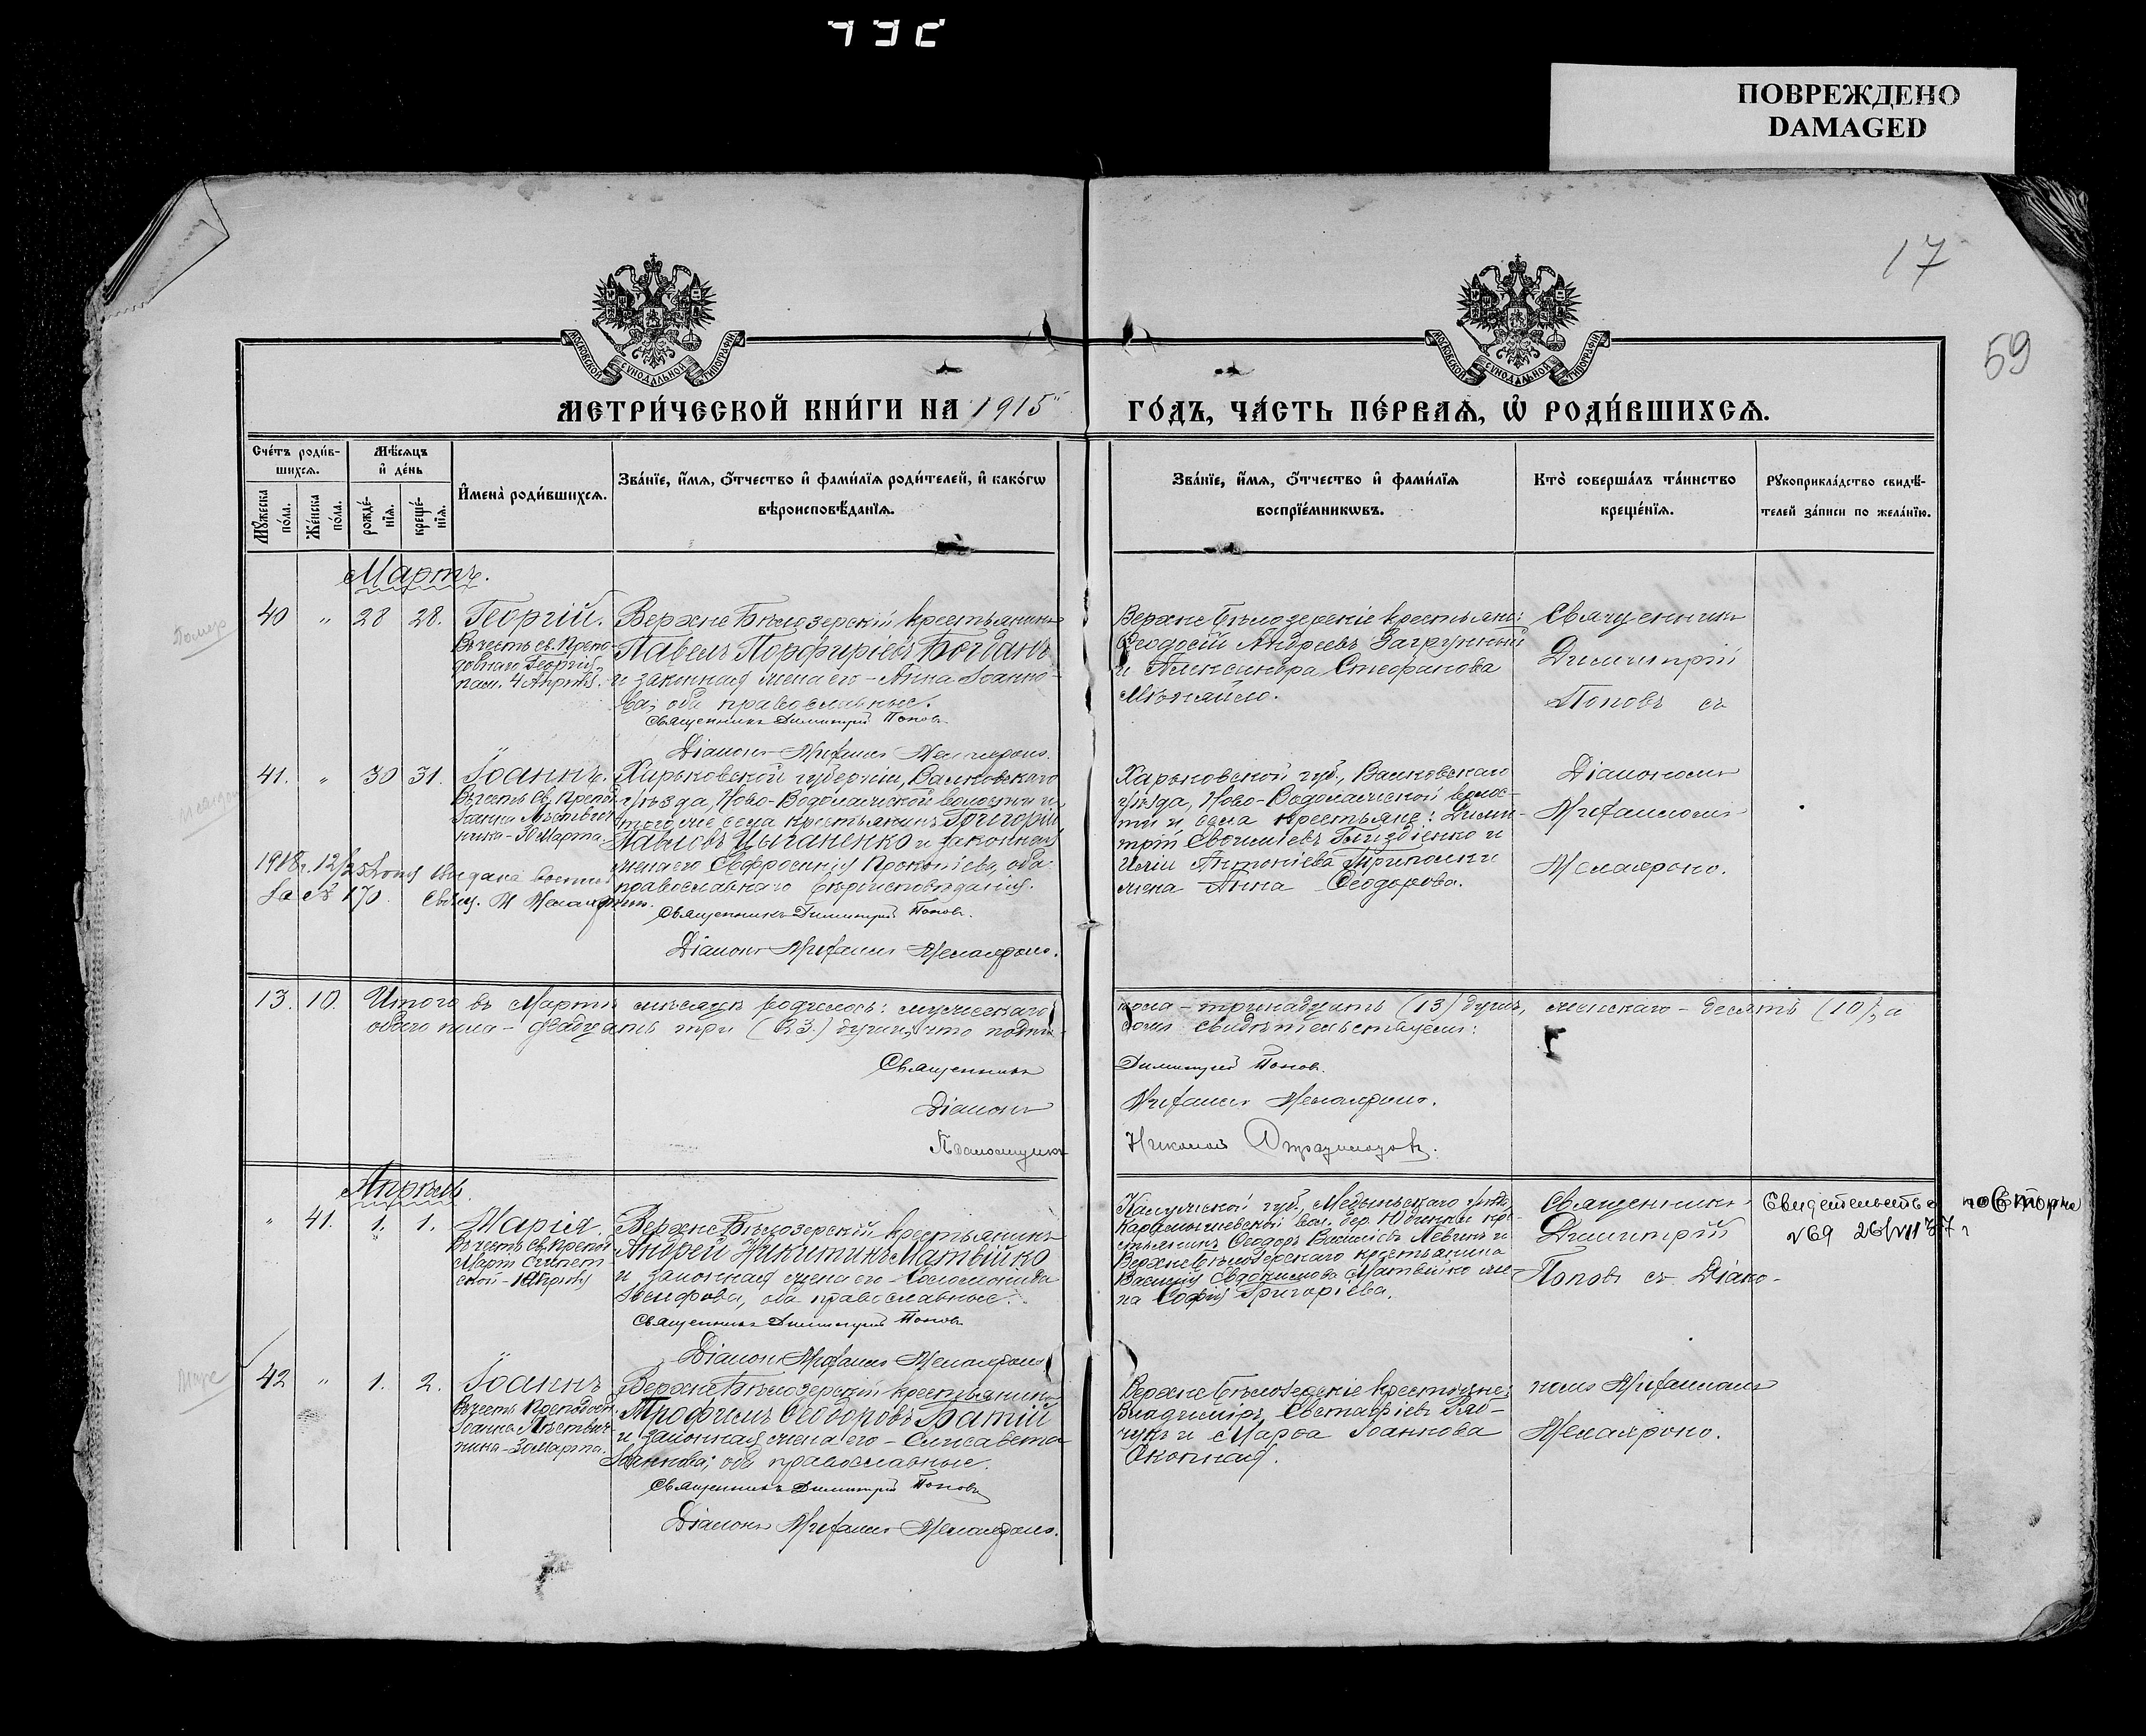 ПОВРЕЖДЕНО
DAMAGED
17
59
МОСКОВСКОЙ СѴНОДАЛЬНОЙ ТИПОГРАФІИ
МОСКОВСКОЙ СѴНОДАЛЬНОЙ ТИПОГРАФІИ
МЕТРИ́ЧЕСКОЙ КНИ́ГИ НА 1915
ГО́ДЪ, ЧА́СТЬ ПЕ́РВАѦ, Ѽ РОДИ́ВШИХСѦ.
Сче́тъ роди́в-
шихсѧ.
Мѣ́сѧцъ
и҆ де́нь
Мꙋ́жеска по́ла.
Же́нска по́ла.
рожде́-нїѧ.
креще́-нїѧ.
И҆мена̀ роди́вшихсѧ.
Зва́нїе, и҆́мѧ, ѻ҆́тчество и҆ фами́лїѧ роди́телей, и҆ како́гѡ
вѣроисповѣ́данїѧ.
Зва́нїе, и҆́мѧ, ѻ҆́тчество и҆ фами́лїѧ
воспрїе́мникѡвъ.
Кто̀ соверша́лъ та́инство
креще́нїѧ.
Рꙋкоприкла́дство свидѣ́-
телей за́писи по жела́нїю.
Мартъ.
Померъ
40 " 28 28. Георгій.
Въ честь св. Препо-
добнаго Георгія,
пам. 4 Апрѣля.
Верхне Бѣлозерскій крестьянинъ
Павелъ Порфиріевъ Богданъ
и законная жена его - Анна Іоанно-
ва; оба православные.
Священникъ Димитрій Поповъ
Діаконъ
Верхне Бѣлозерскіе крестьяне:
Ѳеодосій Андреевъ Загрунный
и Александра Стефанова
Священникъ
Димитрій
Поповъ съ
41. " 30 31. Іоаннъ.
Въ честь Св. Препод.
Іоанна Лѣствич-
ника - 30 Марта.
Харьковской губерніи, Валковскаго
уѣзда, Ново-Водолажской волости и
того же села крестьянинъ Григорій
Павловъ Цыганенко и законная
жена его Евфросинія Прокопіева, оба
православнаго вѣроисповѣданія.
Священникъ Димитрій Поповъ.
Діаконъ
Харьковской губ., Валковскаго
уѣзда, Ново-Водолажской волос-
ти и села крестьяне: Дими-
трій Евѳиміевъ и
Иліи Антоніева
жена Анна Ѳеодорова.
Діакономъ
1918 г. 12/25
за № 170.
13. 10. Итого въ Мартѣ мѣсяцѣ родилось: мужескаго
пола - тринадцать (13) душъ, женскаго - десять (10), а
обоего пола - двадцать три (23) души, что подпи-
сомъ свидѣтельствуемъ:
Священникъ Димитрій Поповъ.
Діаконъ
Псаломщикъ Николай
Апрѣль.
" 41. 1. 1. Марія.
Въ честь Св. Препод.
Маріи Египет-
ской - 1 Апрѣля
Верхне Бѣлозерскій крестьянинъ
Андрей Никитинъ Матвійко
и законная жена его - Соломонида
Іосифова, оба православные.
Священникъ Димитрій Поповъ
Діаконъ
Калужской губ., Медынскаго уѣзда,
волости, дер. Юдинки кре-
стьянинъ Ѳеодоръ Василіевъ Левинъ и
Верхне Бѣлозерскаго крестьянина
Василія Евдокимова Матвійко же-
на Софія Григоріева.
Священникъ
Димитрій
Поповъ съ Діако-
Свидетельство повторно
№69 26/VII 37 г
42 " 1. 2. Іоаннъ
Въ честь Преподоб.
Іоанна Лѣствич-
ника - 30 Марта.
Верхне Бѣлозерскій крестьянинъ
Трофимъ Ѳеодоровъ Батій
и законная жена его - Елисавета
Іоаннова; оба православные.
Священникъ Димитрій Поповъ
Діаконъ
Верхне Бѣлозерскіе крестьяне:
Владиміръ Евстафіевъ Ряб-
чукъ и Марѳа Іоаннова
Окопная.
номъ